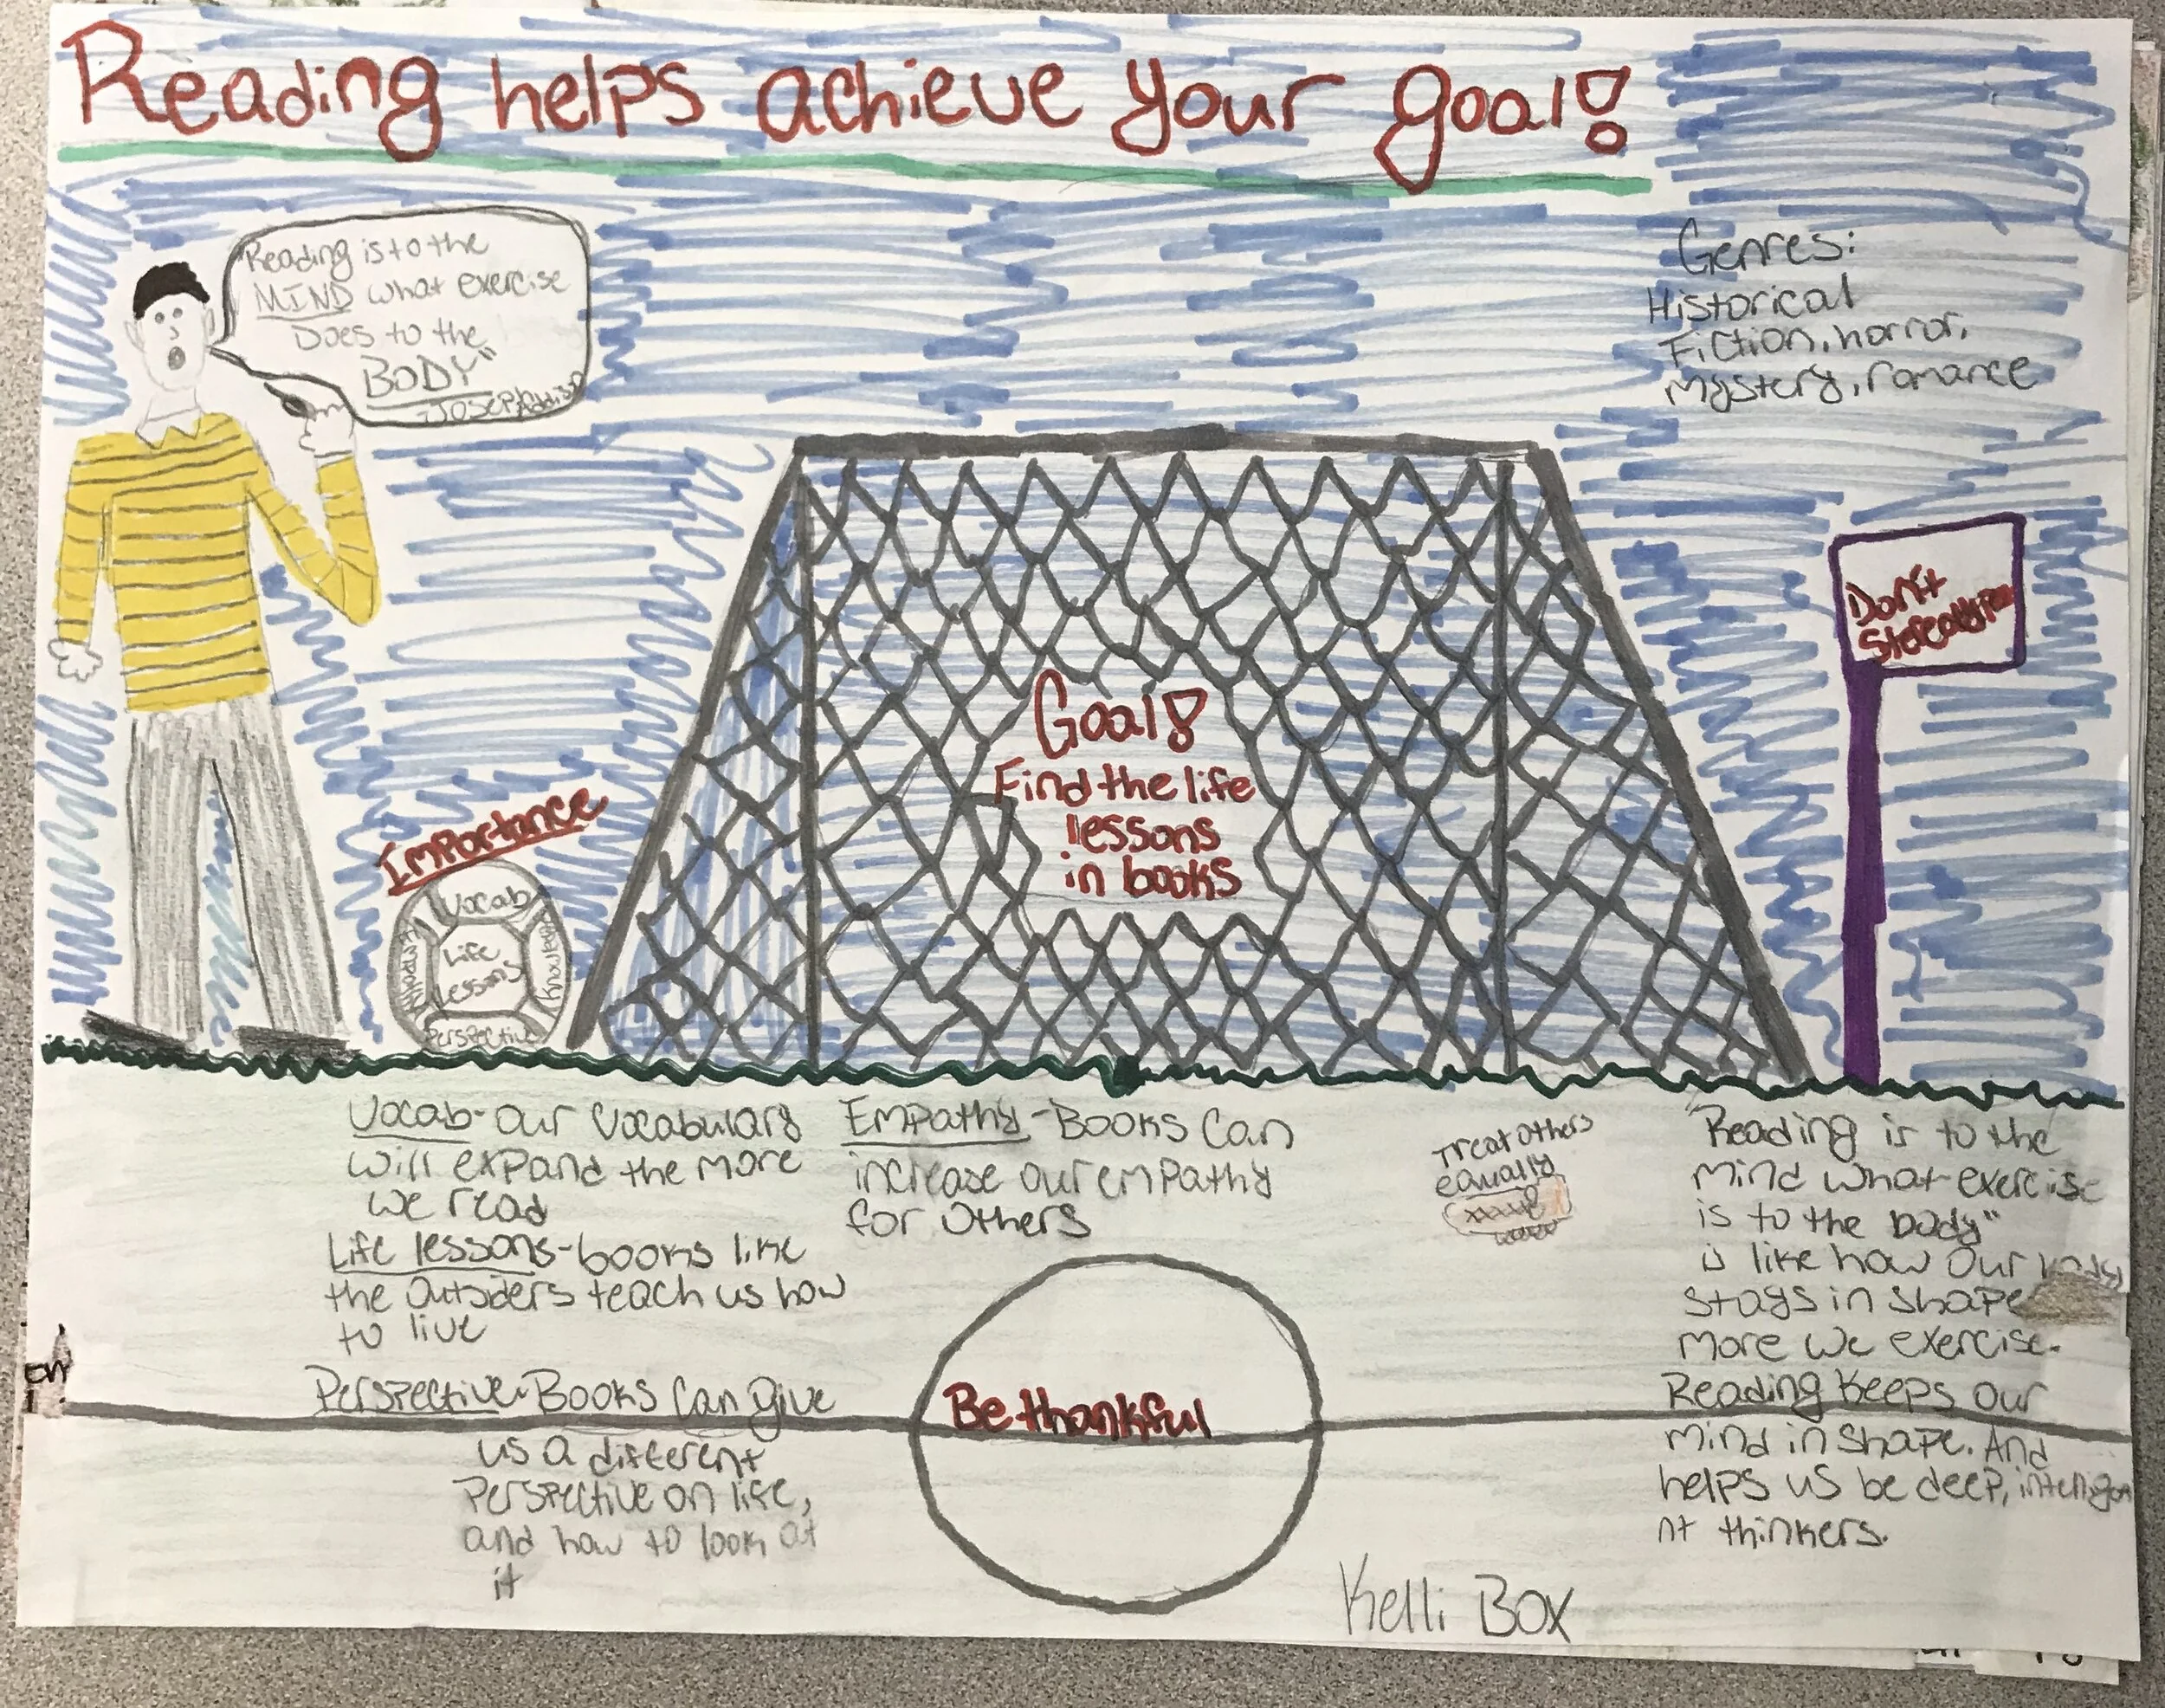 Reading helps achieve your goal!
"Reading is to the
MIND what exercise
Does to the
BODY"
-Joseph Addison
Genres:
Historical
Fiction, horror,
Mystery, romance
Don't
Stereotype
Goal!
Find the life
lessons
in books
Importance
Vocab
Empathy
Life
Lessons
Knowledge
Perspective
Vocab- our vocabulary
will expand the more
we read
Life lessons- books like
the Outsiders teach us how
to live
Perspective- Books can give
us a different
Perspective on life,
and how to look at
it
Empathy - Books can
increase our empathy
for others
Treat others
equally
Be thankful
"Reading is to the
mind what exercise
is to the body"
is like how our body
stays in shape
more we exercise.
Reading keeps our
mind in shape. And
helps us be deep, intellige
nt thinkers.
Kelli Box